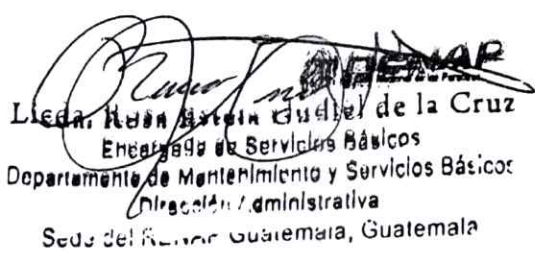 RENAP
Licda. Rosa de la Cruz
Encargada de Servicios Básicos
Departamento de Mantenimiento y Servicios Básicos
Dirección Administrativa
Sede del RENAP Guatemala, Guatemala